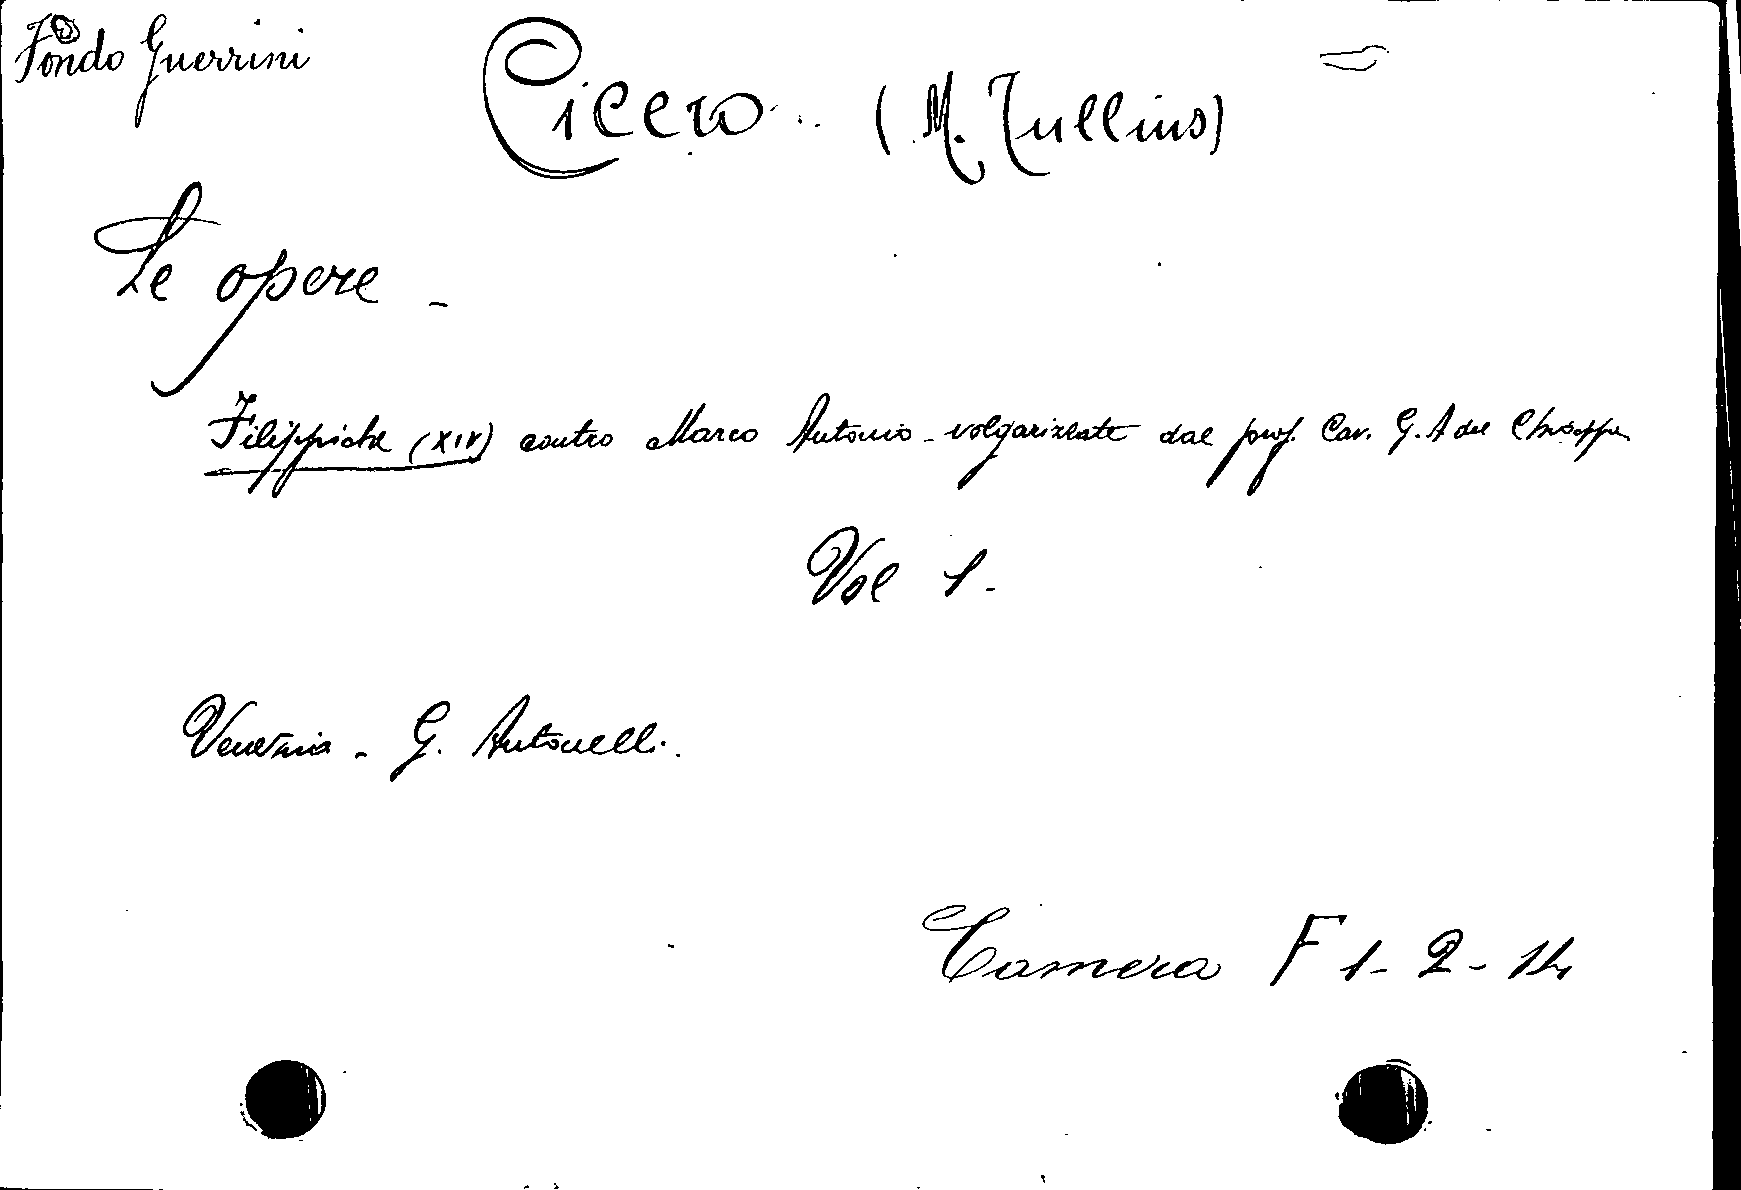 Fondo Guerrini
Cicero (M. Tullius)
Le opere -
Filippiche (XIV) contro Marco Antonio - volgarizzate dal prof. Cav. G. A del Chiappa
Vol 1.
Venezia - G. Antonelli.
Camera F 1 - 2 - 14